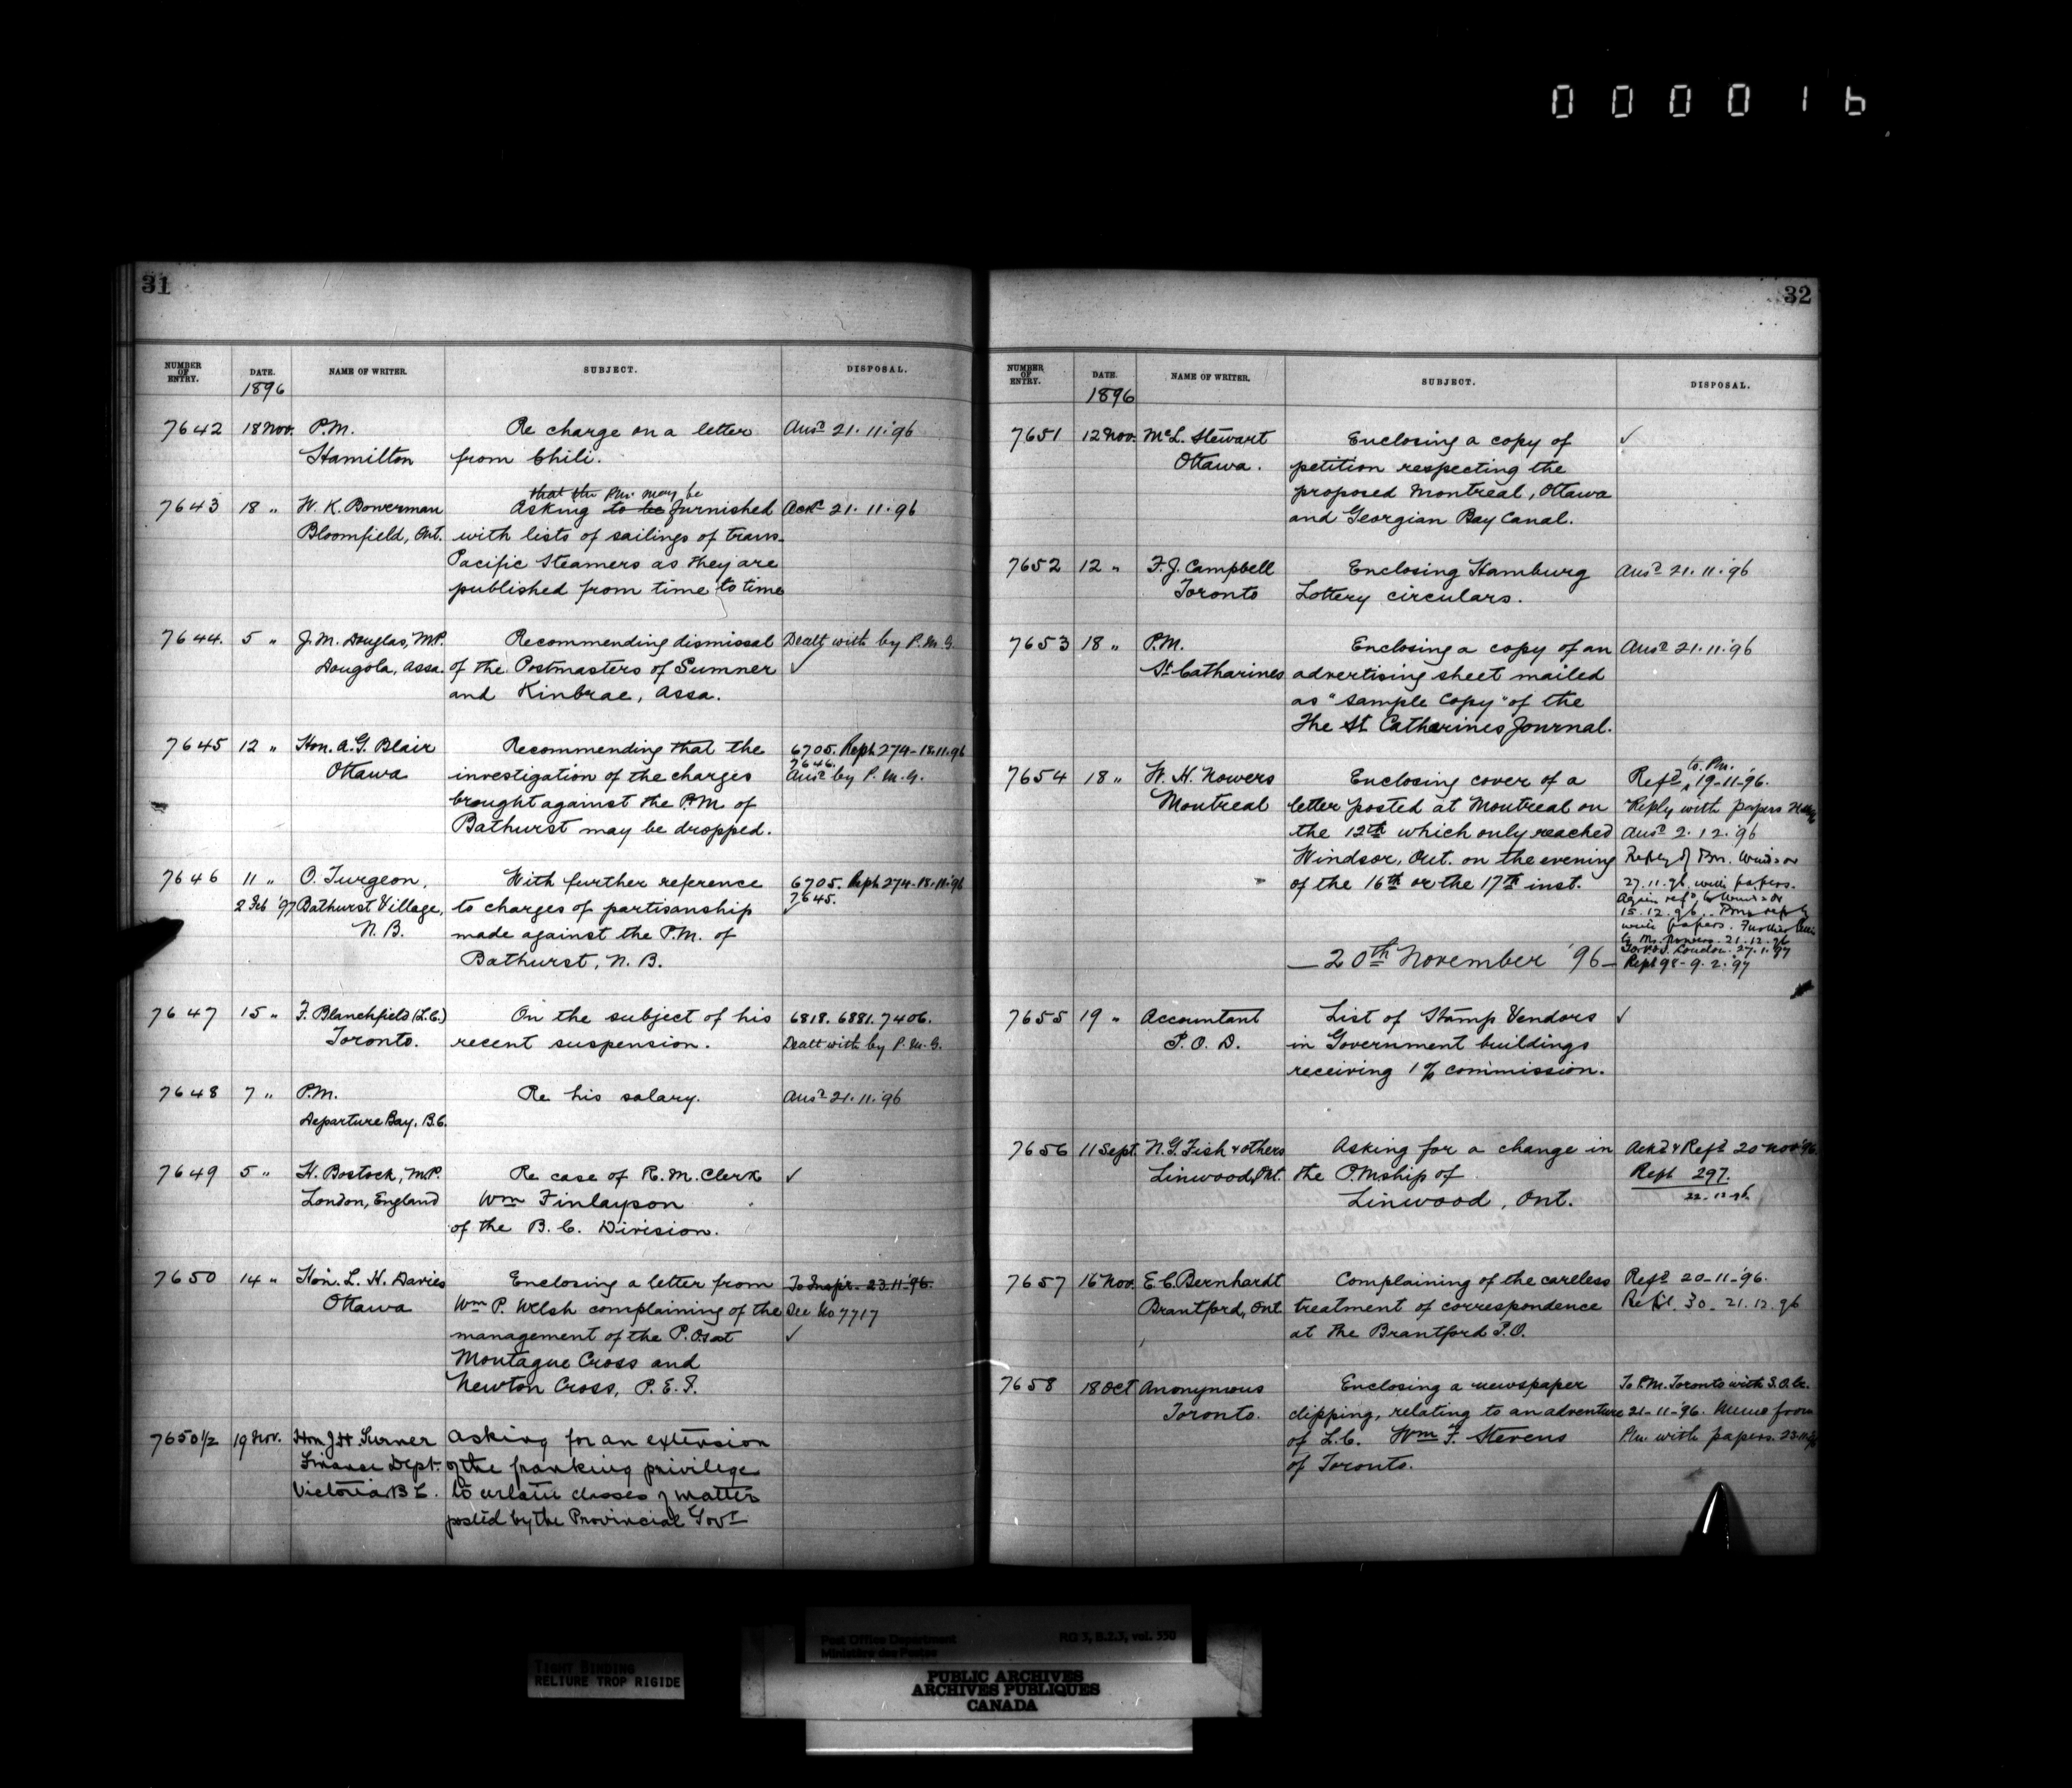 0 0 0 0 1 6
31
NUMBER OF ENTRY. DATE. NAME OF WRITER. SUBJECT. DISPOSAL.
1896
7642 18 Nov. P.M. Re charge on a letter Ansd 21.11.'96
Hamilton from Chili.
that the P.M. may be
7643 18 " W. K. Bowerman Asking to be furnished Ackd 21.11.96
Bloomfield, Ont. with lists of sailings of trans-
Pacific Steamers as they are
published from time to time
7644. 5 " J. M. Douglas, M.P. Recommending dismissal Dealt with by P.M.G.
Dongola, Assa. of the Postmasters of Sumner ✓
and Kinbrae, Assa.
7645 12 " Hon. A. G. Blair Recommending that the 6705. Rept 274-18.11.96
7646.
Ottawa investigation of the charges Ansd by P.M.G.
brought against the P.M. of
Bathurst may be dropped.
7646 11 " O. Turgeon, With further reference 6705. Rept 274-18.11.96
2 Feb '97 Bathurst Village, to charges of partisanship 7645.
N. B. made against the P.M. of ✓
Bathurst, N. B.
7647 15 " F. Blanchfield (L.C.) On the subject of his 6818. 6881. 7406.
Toronto. recent suspension. Dealt with by P.M.G.
7648 7 " P.M. Re his salary. Ansd 21.11.'96
Departure Bay, B.C.
7649 5 " H. Bostock, M.P. Re case of R. M. Clerk ✓
London, England Wm Finlayson
of the B. C. Division.
7650 14 " Hon. L. H. Davies Enclosing a letter from To Inspr. 23.11.'96.
Ottawa Wm P. Welsh complaining of the See No 7717
management of the P. Os at ✓
Montague Cross and
Newton Cross, P. E. I.
7650 1/2 19 Nov. Hon J. H. Turner Asking for an extension
Finance Dept. of the franking privilege
Victoria B C. to certain classes of matter
posted by the Provincial Govt
32
NUMBER OF ENTRY. DATE. NAME OF WRITER. SUBJECT. DISPOSAL.
1896
7651 12 Nov. McL. Stewart Enclosing a copy of ✓
Ottawa. petition respecting the
proposed Montreal, Ottawa
and Georgian Bay Canal.
7652 12 " F. J. Campbell Enclosing Hamburg Ansd 21.11.'96
Toronto Lottery circulars.
7653 18 " P.M. Enclosing a copy of an Ansd 21.11.'96
St. Catharines advertising sheet mailed
as "Sample Copy" of the
The St Catharines Journal.
to P.M.
7654 18 " W. H. Nowers Enclosing cover of a Refd 19-11-'96.
Montreal letter posted at Montreal on Reply with papers
the 12th which only reached Ansd 2.12.'96
Windsor, Ont. on the evening Reply of P.M. Windsor
of the 16th or the 17th inst. 27.11.96 with papers.
Again refd to Windsor
15.12.96. P.M's reply
with papers. Further letter
to Mr. Nowers. 21.12.96
London. 27.1.97
— 20th November '96 — Rept 98-9.2.'97
7655 19 " Accountant List of Stamp Vendors ✓
P. O. D. in Government buildings
receiving 1 % commission.
7656 11 Sept. N. G. Fish & others Asking for a change in Ackd & Refd 20 Nov '96.
Linwood, Ont. the P.Mship of Rept 297.
Linwood, Ont. 22.12.96
7657 16 Nov. E. C. Bernhardt Complaining of the careless Refd 20-11-'96.
Brantford, Ont. treatment of correspondence 30-21.12.96
at the Brantford P.O.
7658 18 Oct Anonymous Enclosing a newspaper To P.M. Toronto with
Toronto. clipping, relating to an adventure 21-11-'96. Memo from
of L.C. Wm F. Stevens P.M. with papers.
of Toronto.
TIGHT BINDING
RELIURE TROP RIGIDE
Post Office Department RG 3, B.2.3, vol. 550
Ministère des Postes
PUBLIC ARCHIVES
ARCHIVES PUBLIQUES
CANADA